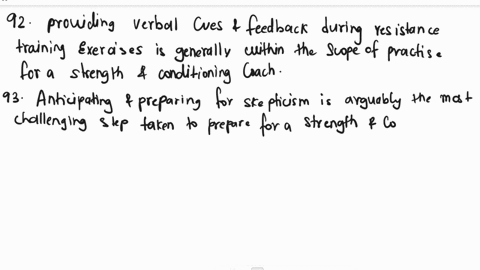 92. providing verbal Cues & feedback during resistance
training Exercises is generally within the Scope of practise
for a strength & conditioning Coach.
93. Anticipating & preparing for skepticism is arguably the most
challenging step taken to prepare for a strength & Co